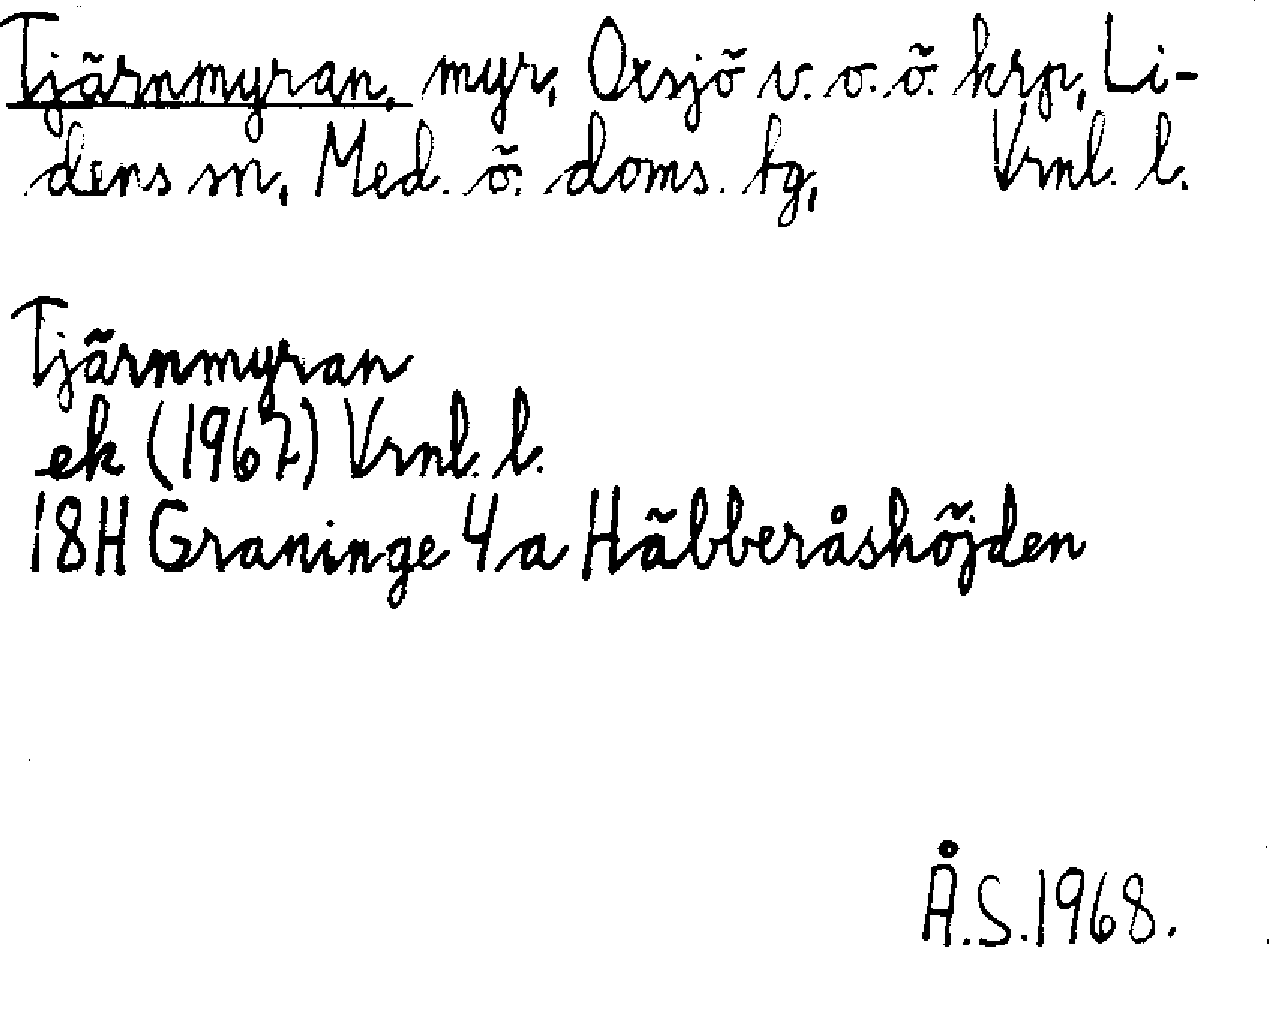 Tjärnmyran, myr, Oxsjö v. o. ö. krp, Li-
dens sn, Med. ö. doms. tg, Vrnl. l.
Tjärnmyran
ek (1967) Vrnl. l.
18H Graninge 4a Häbberåshöjden
Å.S.1968.